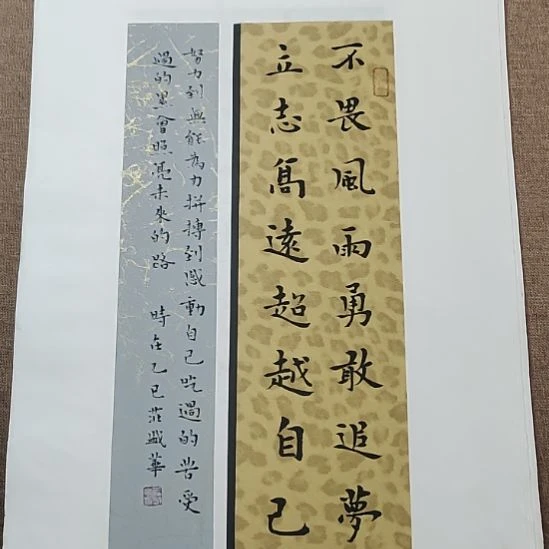 不畏風雨勇敢追夢
立志髙遠超越自己
努力到無能為力拼搏到感動自己吃過的苦受
過的累會照亮未來的路 時在乙巳